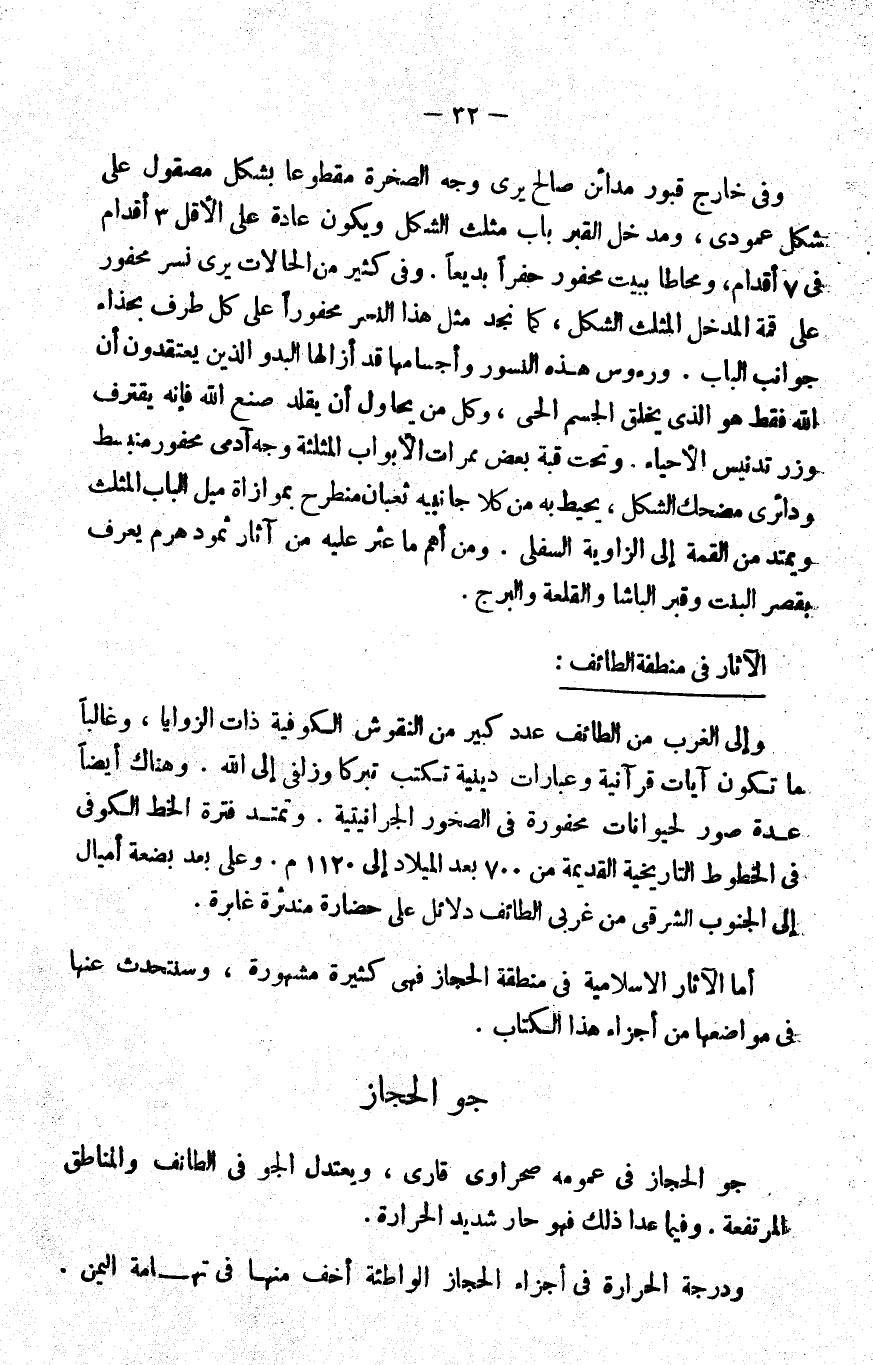 — ٣٢ —
وفى خارج قبور مدائن صالح يرى وجه الصخرة مقطوعا بشكل مصقول على
شكل عمودى ، ومدخل القبر باب مثلث الشكل ويكون عادة على الأقل ٣ أقدام
فى ٧ أقدام، ومحاطا ببيت محفور حفراً بديعاً . وفى كثير من الحالات يرى نسر محفور
على قمة المدخل المثلث الشكل ، كما نجد مثل هذا النسر محفوراً على كل طرف بحذاء
جوانب الباب . ورءوس هذه النسور وأجسامها قد أزالها البدو الذين يعتقدون أن
الله فقط هو الذى يخلق الجسم الحى ، وكل من يحاول أن يقلد صنع الله فإنه يقترف
وزر تدنيس الأحياء . وتحت قبة بعض ممرات الأبواب المثلثة وجه آدمى محفور منبسط
ودائرى مضحك الشكل ، يحيط به من كلا جانبيه ثعبان منطرح بموازاة ميل الباب المثلث
ويمتد من القمة إلى الزاوية السفلى . ومن أهم ما عثر عليه من آثار ثمود هرم يعرف
بقصر البنت وقبر الباشا والقلعة والبرج .
الآثار فى منطقة الطائف :
وإلى الغرب من الطائف عدد كبير من النقوش الكوفية ذات الزوايا ، وغالباً
ما تكون آيات قرآنية وعبارات دينية تكتب تبركا وزلفى إلى الله . وهناك أيضاً
عدة صور لحيوانات محفورة فى الصخور الجرانيتية . وتمتد فترة الخط الكوفى
فى الخطوط التاريخية القديمة من ٧٠٠ بعد الميلاد إلى ١١٢٠ م . وعلى بعد بضعة أميال
إلى الجنوب الشرقى من غربى الطائف دلائل على حضارة مندثرة غابرة .
أما الآثار الاسلامية فى منطقة الحجاز فهى كثيرة مشهورة ، وسنتحدث عنها
فى مواضعها من أجزاء هذا الكتاب .
جو الحجاز
جو الحجاز فى عمومه صحراوى قارى ، ويعتدل الجو فى الطائف والمناطق
المرتفعة . وفيما عدا ذلك فهو حار شديد الحرارة .
ودرجة الحرارة فى أجزاء الحجاز الواطئة أخف منها فى تهامة اليمن .